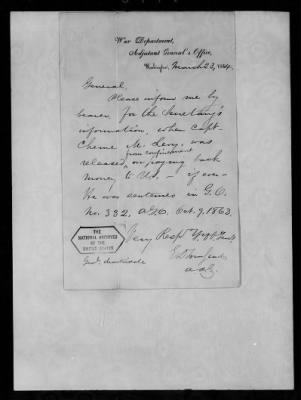 War Department,
Adjutant General's Office,
Washington, March 23, 1864.
General,
Please inform me by
bearer for the Secretary's
information, when Capt.
Cheme M. Levy, was
from confinement
released, on paying back
money to U.S. – if ever
He was sentenced in G.O.
No. 332. A.G.O. Oct. 9, 1863.
Very Resply
THE
NATIONAL ARCHIVES
OF THE
UNITED STATES
E D Townsend
A.A.G.